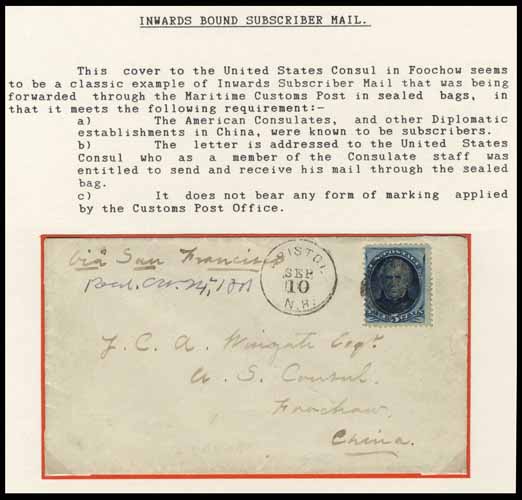 INWARDS BOUND SUBSCRIBER MAIL.
This cover to the United States Consul in Foochow seems
to be a classic example of Inwards Subscriber Mail that was being
forwarded through the Maritime Customs Post in sealed bags, in
that it meets the following requirement:-
a) The American Consulates, and other Diplomatic
establishments in China, were known to be subscribers.
b) The letter is addressed to the United States
Consul who as a member of the Consulate staff was
entitled to send and receive his mail through the sealed
bag.
c) It does not bear any form of marking applied
by the Customs Post Office.
via San Francisco
BRISTOL
SEP
10
N.H.
J. C. A. Wingate Esqr.
U. S. Consul.
Foochow.
China.